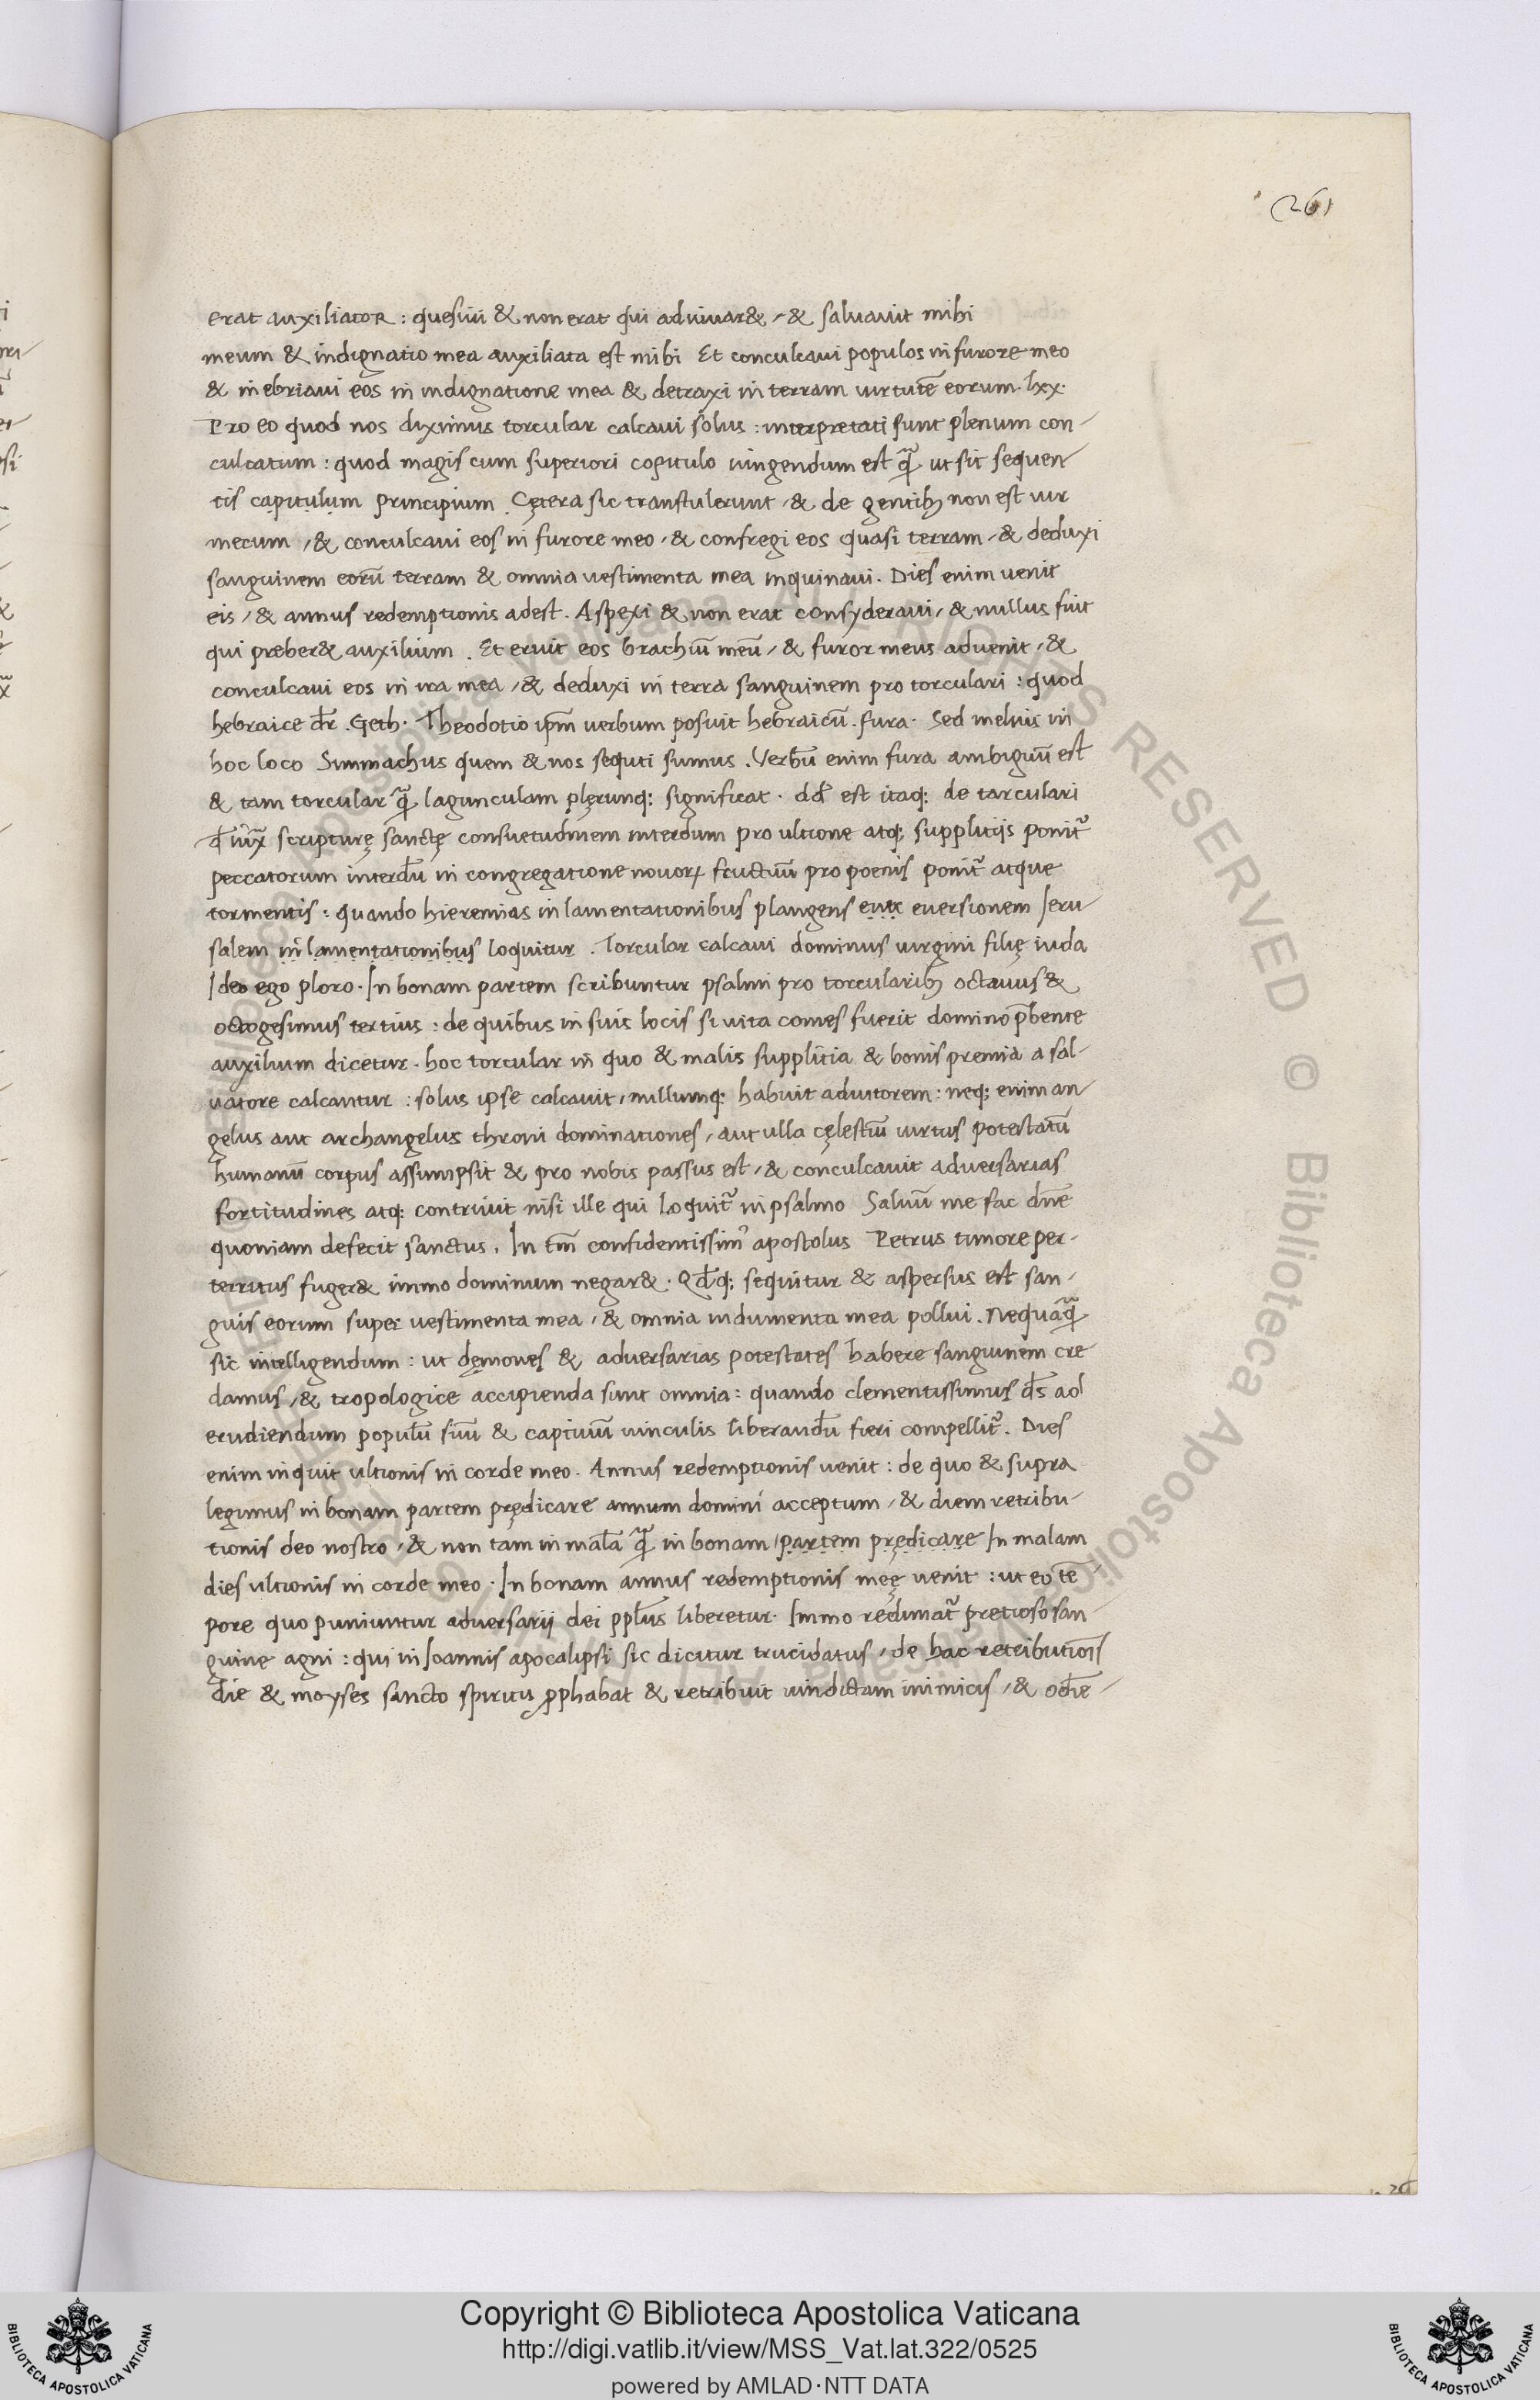 261
erat auxiliator : quesiui & non erat qui adiuuar& / & saluauit mihi
meum & indignatio mea auxiliata est mihi Et conculcaui populos in furore meo
& inebriaui eos in indignatione mea & detraxi in terram uirtutē eorum. lxx.
Pro eo quod nos diximus torcular calcaui solus : interpretati sunt plenum con-
culcatum : quod magis cum superiori copitulo iungendum est q̃ ut sit sequen
tis capitulum principium . Cętera sic transtulerunt / & de gentib; non est uir
mecum / & conculcaui eos in furore meo / & confregi eos quasi terram / & deduxi
sanguinem eorū terram & omnia vestimenta mea inquinaui. Dies enim uenit
eis / & annus redemptionis adest. Aspexi & non erat consyderaui / & nullus fuit
qui preber& auxilium . Et eruit eos brachiū meū / & furor meus aduenit / &
conculcaui eos in ira mea / & deduxi in terra sanguinem pro torculari : quod
hebraice dr̄ . Geth. Theodotio ip̄m uerbum posuit hebraicū. fura. Sed melius in
hoc loco Simmachus quem & nos sequti sumus . Verbū enim fura ambiguū est
& tam torcular q̃ lagunculam plęrunq; significat. dd̄ est itaq; de tarculari
scripturę sanctę consuetudinem interdum pro ultione atq; supplitijs ponit᷑
peccatorum interdū in congregatione nouoꝝ fructuū pro poenis ponit᷑ atque
tormentis : quando hieremias in lamentationibus plangens euersionem Ieru
salem in lamentationibus loquitur . Torcular calcaui dominus uirgini filię iuda
Ideo ego ploro. In bonam partem scribuntur psalmi pro torcularib; octauus &
octogesimus tertius : de quibus in suis locis si uita comes fuerit domino p̄bente
auxilium dicetur. hoc torcular in quo & malis supplitia & bonis premia a sal-
uatore calcantur : solus ipse calcauit / nullumq; habuit adiutorem : neq; enim an
gelus aut archangelus throni dominationes / aut ulla cęlestiū uirtus potestatū
humanū corpus assumpsit & pro nobis passus est / & conculcauit aduersarias
fortitudines atq; contriuit nisi ille qui loquit᷑ in psalmo Saluū me fac dn̄e
quoniam defecit sanctus. In tm̄ confidentissim᾿ apostolus Petrus timore per-
territus fuger& immo dominum negar&. Qd̄q; sequitur & aspersus est san-
guis eorum super uestimenta mea / & omnia indumenta mea pollui. Nequaq̃
sic intelligendum : ut dęmones & aduersarias potestates habere sanguinem cre
damus / & tropologice accipienda sunt omnia : quando clementissimus ds̄ ad
erudiendum populū suū & captiuū uinculis liberandū fieri compellit᷑. Dies
enim inquit ultionis in corde meo. Annus redemptionis uenit : de quo & supra
legimus in bonam partem prędicare annum domini acceptum / & diem retribu-
tionis deo nostro / & non tam in malā q̃ in bonam partem prędicare In malam
dies ultionis in corde meo. In bonam annus redemptionis meę uenit : ut eo tē
pore quo puniuntur aduersarii dei ppl̄us liberetur. Immo redimat᷑ pretioso san-
guine agni : qui in Ioannis apocalipsi sic dicitur trucidatus / de hac retributiōis
die & moyses sancto spiritu ꝓphabat & retribuit uindictam inimicis / & odiē
Copyright © Biblioteca Apostolica Vaticana
http://digi.vatlib.it/view/MSS_Vat.lat.322/0525
powered by AMLAD·NTT DATA